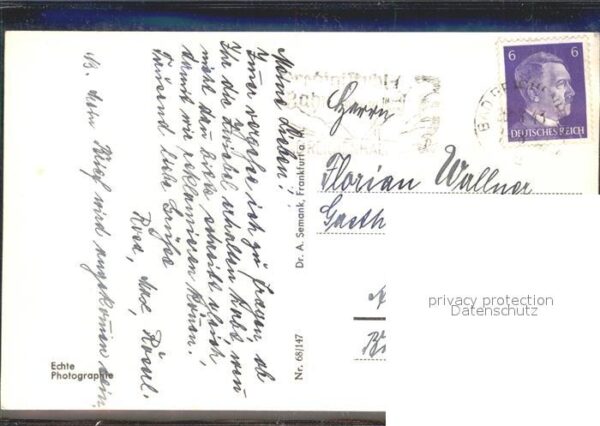 Meine Lieben!
Immer vergesse ich zu fragen ob
Ihr die Zwiebel erhalten habt wen
nicht dan bitte schreibt gleich,
damit wir reklamieren könen.
Tausend liebe Grüsse
Rosa, Max, Rosul.
Mein Brief wird angekomen sein.
Echte
Photographie
Nr. 68/147
Dr. A. Semank, Frankfurt a. M.
6 6
DEUTSCHES REICH
Herrn
Florian Wallner
Gasth
privacy protection
Datenschutz